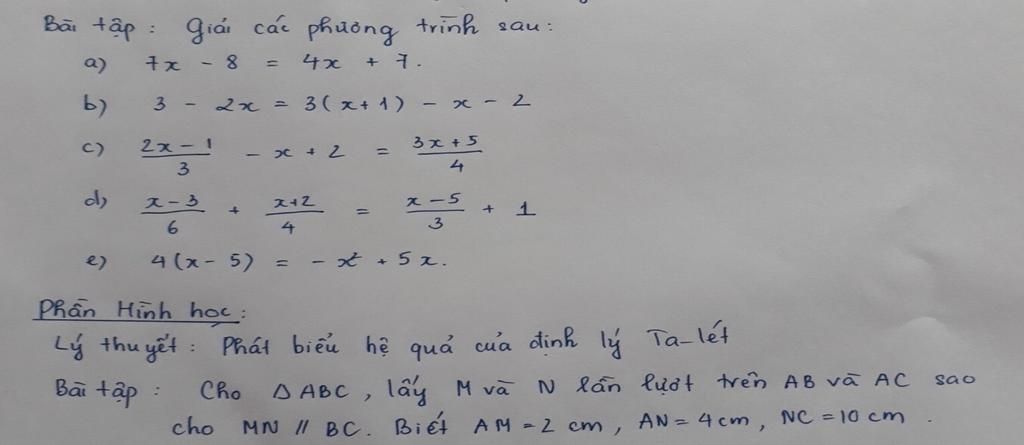 Bài tập : Giải các phương trình sau :
a) 7x - 8 = 4x + 7.
b) 3 - 2x = 3(x+1) - x - 2
c) (2x - 1)/3 - x + 2 = (3x + 5)/4
d) (x - 3)/6 + (x+2)/4 = (x - 5)/3 + 1
e) 4(x - 5) = - x² + 5x.
Phần Hình học :
Lý thuyết : Phát biểu hệ quả của định lý Ta-lét
Bài tập : Cho △ ABC , lấy M và N lần lượt trên AB và AC sao
cho MN // BC. Biết AM = 2 cm , AN = 4 cm , NC = 10 cm .